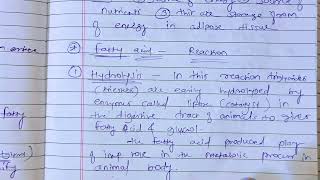 nutrients ③ this are storage form
of energy in adipose tissue
* Fatty acid - Reaction
① Hydrolysis - In this reaction triglycerides
(triesters) are easily hydrolysed by
enzymes called lipase (catalyst) in
the digestive tract of animals to gives
fatty acid & glycerol.
the fatty acid produced play
of imp role in the metabolic process in
animal body.
fatty